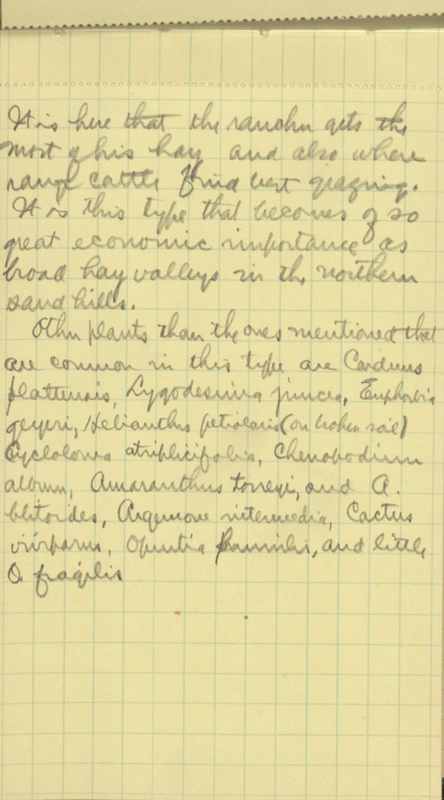 It is here that the rancher gets the
most of his hay and also where
range cattle find best grazing.
It is this type that becomes of so
great economic importance as
broad hay valleys in the northern
sand hills.
Other plants than the ones mentioned that
are common in this type are Carduus
plattensis, Lygodesmia juncea, Euphorbia
geyeri, Helianthus petiolaris (on broken soil)
Cycloloma atriplicifolia, Chenopodium
album, Amaranthus torreyi, and A.
blitoides, Argemone intermedia, Cactus
viviparus, Opuntia humilis, and little
O fragilis